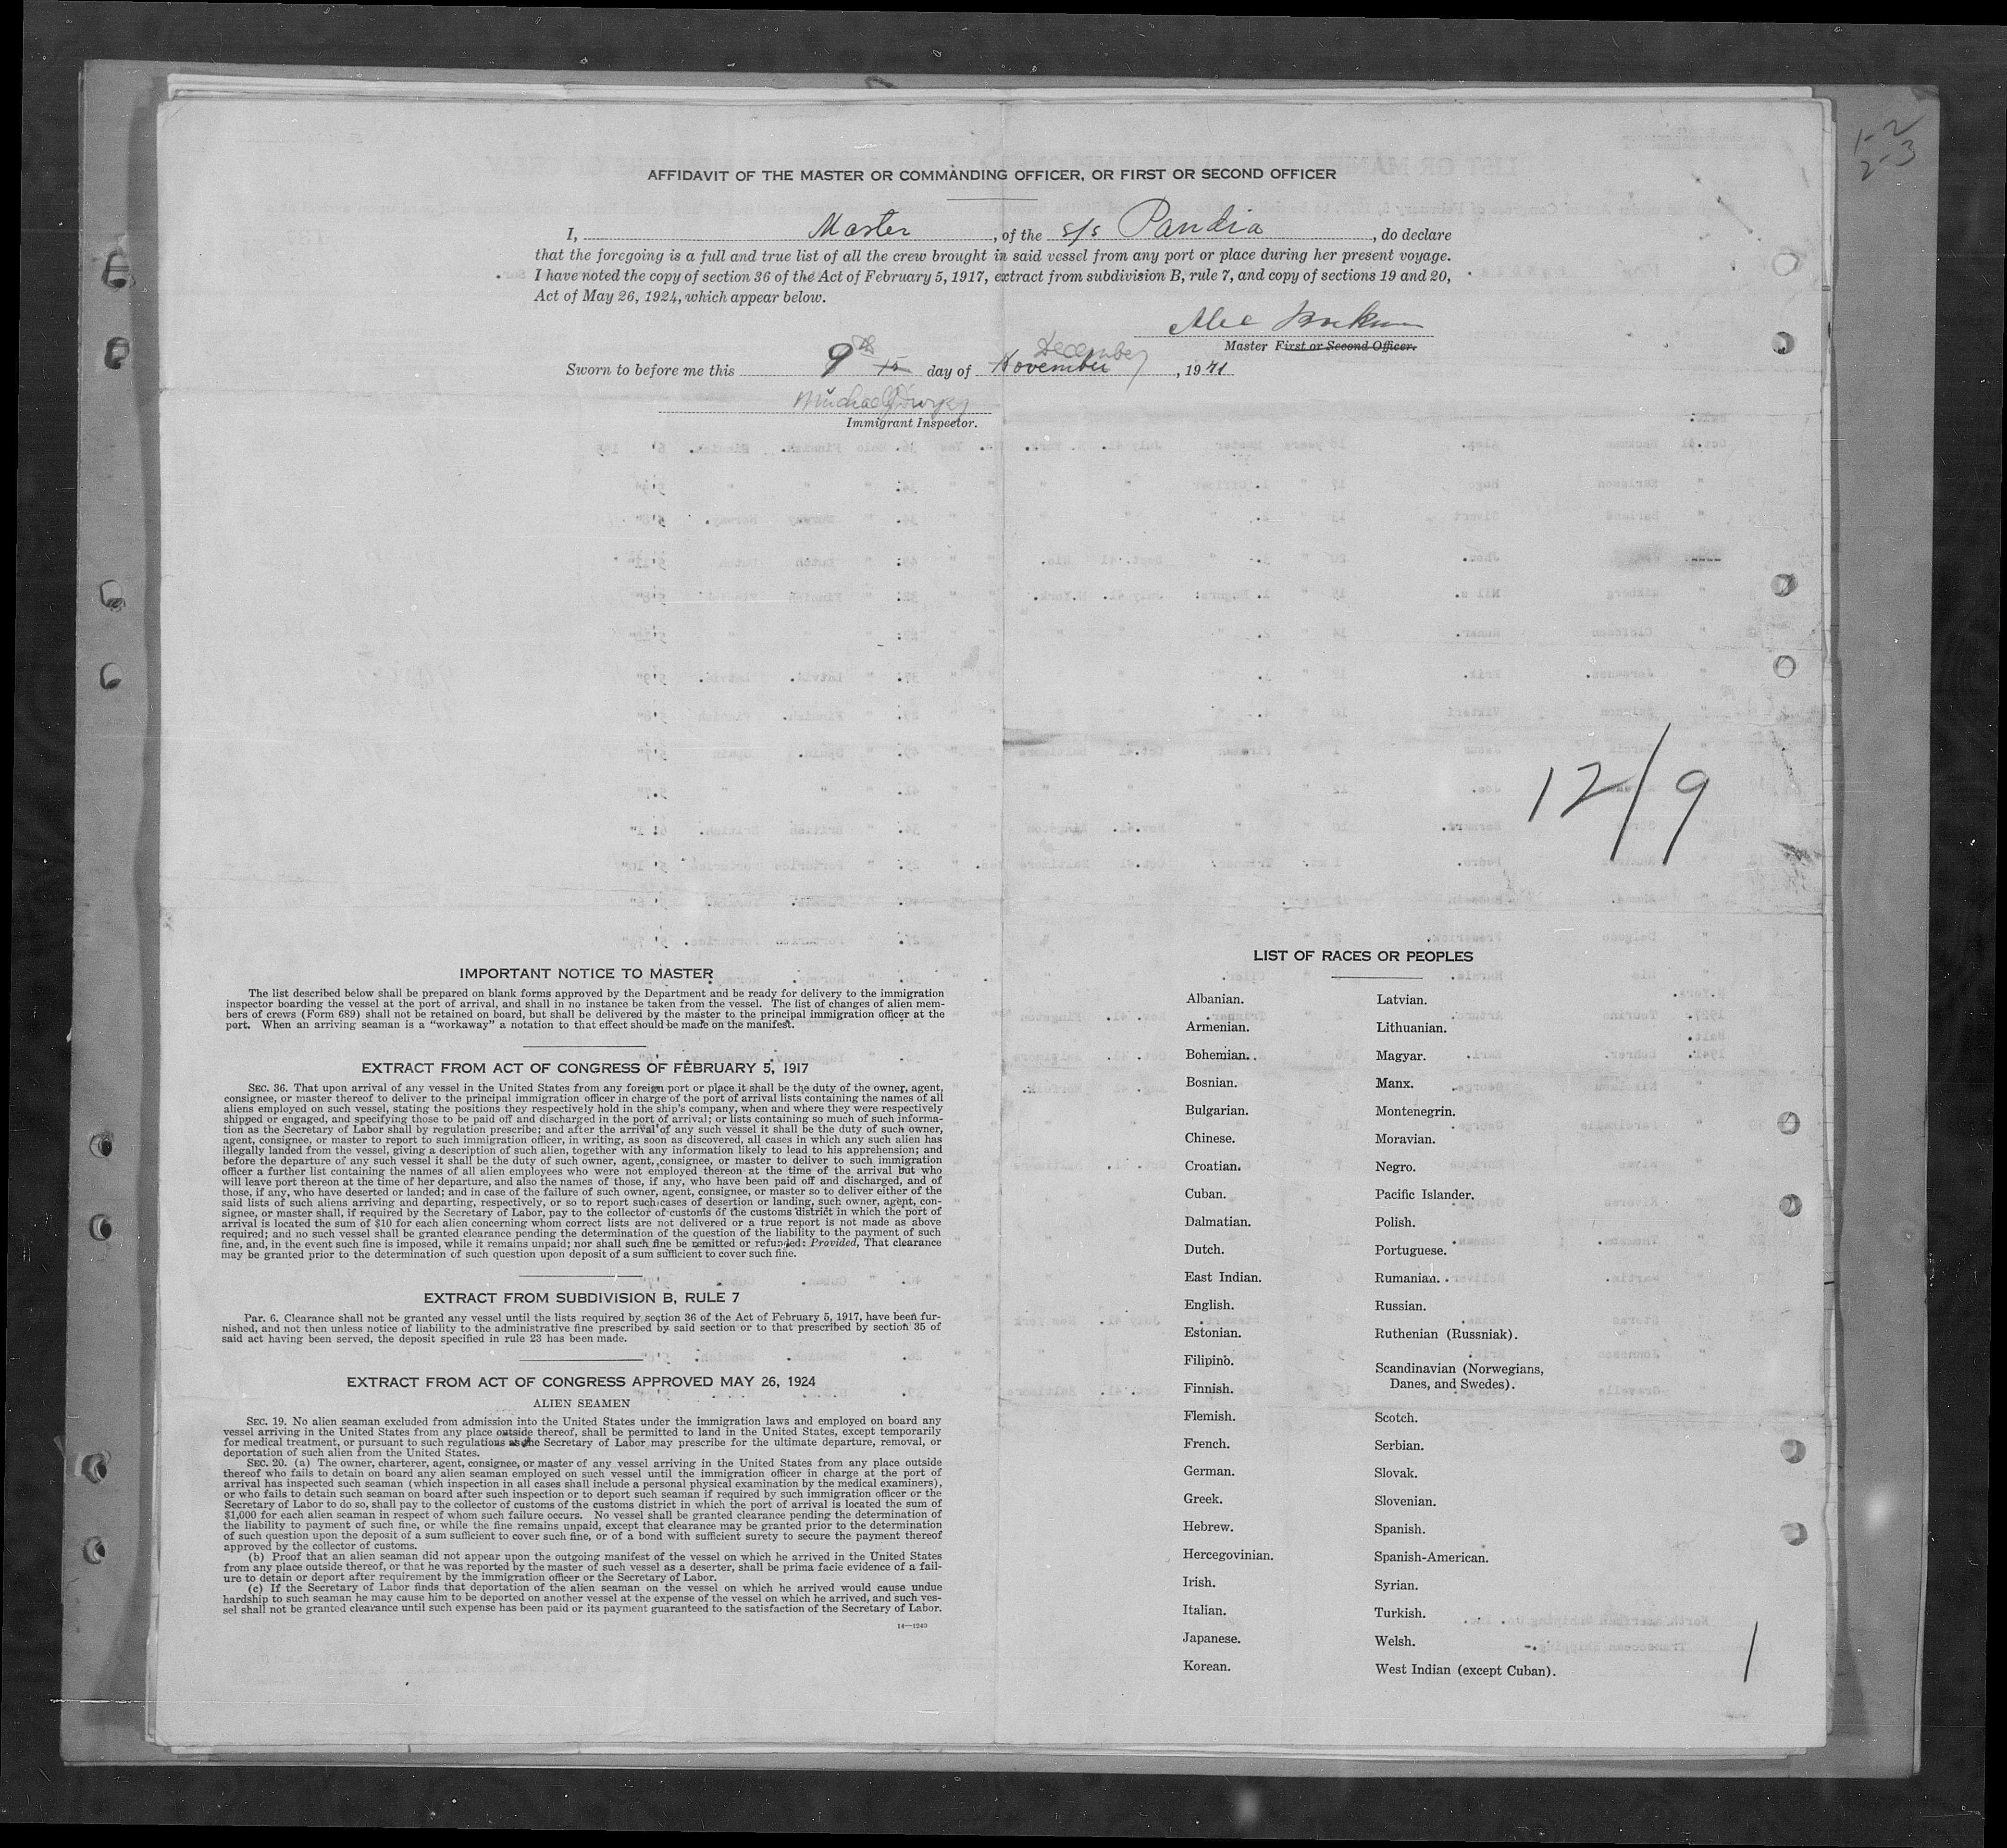 1-2
2-3
AFFIDAVIT OF THE MASTER OR COMMANDING OFFICER, OR FIRST OR SECOND OFFICER
I, Master, of the s/s Pandia, do declare
that the foregoing is a full and true list of all the crew brought in said vessel from any port or place during her present voyage.
I have noted the copy of section 36 of the Act of February 5, 1917, extract from subdivision B, rule 7, and copy of sections 19 and 20,
Act of May 26, 1924, which appear below.
Master First or Second Officer.
December
Sworn to before me this 9th 15 day of November, 1941
Immigrant Inspector.
12/9
IMPORTANT NOTICE TO MASTER
The list described below shall be prepared on blank forms approved by the Department and be ready for delivery to the immigration
inspector boarding the vessel at the port of arrival, and shall in no instance be taken from the vessel. The list of changes of alien mem-
bers of crews (Form 689) shall not be retained on board, but shall be delivered by the master to the principal immigration officer at the
port. When an arriving seaman is a "workaway" a notation to that effect should be made on the manifest.
EXTRACT FROM ACT OF CONGRESS OF FEBRUARY 5, 1917
SEC. 36. That upon arrival of any vessel in the United States from any foreign port or place it shall be the duty of the owner, agent,
consignee, or master thereof to deliver to the principal immigration officer in charge of the port of arrival lists containing the names of all
aliens employed on such vessel, stating the positions they respectively hold in the ship's company, when and where they were respectively
shipped or engaged, and specifying those to be paid off and discharged in the port of arrival; or lists containing so much of such informa-
tion as the Secretary of Labor shall by regulation prescribe; and after the arrival of any such vessel it shall be the duty of such owner,
agent, consignee, or master to report to such immigration officer, in writing, as soon as discovered, all cases in which any such alien has
illegally landed from the vessel, giving a description of such alien, together with any information likely to lead to his apprehension; and
before the departure of any such vessel it shall be the duty of such owner, agent, consignee, or master to deliver to such immigration
officer a further list containing the names of all alien employees who were not employed thereon at the time of the arrival but who
will leave port thereon at the time of her departure, and also the names of those, if any, who have been paid off and discharged, and of
those, if any, who have deserted or landed; and in case of the failure of such owner, agent, consignee, or master so to deliver either of the
said lists of such aliens arriving and departing, respectively, or so to report such cases of desertion or landing, such owner, agent, con-
signee, or master shall, if required by the Secretary of Labor, pay to the collector of customs of the customs district in which the port of
arrival is located the sum of $10 for each alien concerning whom correct lists are not delivered or a true report is not made as above
required; and no such vessel shall be granted clearance pending the determination of the question of the liability to the payment of such
fine, and, in the event such fine is imposed, while it remains unpaid; nor shall such fine be remitted or refunded: Provided, That clearance
may be granted prior to the determination of such question upon deposit of a sum sufficient to cover such fine.
EXTRACT FROM SUBDIVISION B, RULE 7
Par. 6. Clearance shall not be granted any vessel until the lists required by section 36 of the Act of February 5, 1917, have been fur-
nished, and not then unless notice of liability to the administrative fine prescribed by said section or to that prescribed by section 35 of
said act having been served, the deposit specified in rule 23 has been made.
EXTRACT FROM ACT OF CONGRESS APPROVED MAY 26, 1924
ALIEN SEAMEN
SEC. 19. No alien seaman excluded from admission into the United States under the immigration laws and employed on board any
vessel arriving in the United States from any place outside thereof, shall be permitted to land in the United States, except temporarily
for medical treatment, or pursuant to such regulations as the Secretary of Labor may prescribe for the ultimate departure, removal, or
deportation of such alien from the United States.
SEC. 20. (a) The owner, charterer, agent, consignee, or master of any vessel arriving in the United States from any place outside
thereof who fails to detain on board any alien seaman employed on such vessel until the immigration officer in charge at the port of
arrival has inspected such seaman (which inspection in all cases shall include a personal physical examination by the medical examiners),
or who fails to detain such seaman on board after such inspection or to deport such seaman if required by such immigration officer or the
Secretary of Labor to do so, shall pay to the collector of customs of the customs district in which the port of arrival is located the sum of
$1,000 for each alien seaman in respect of whom such failure occurs. No vessel shall be granted clearance pending the determination of
the liability to payment of such fine, or while the fine remains unpaid, except that clearance may be granted prior to the determination
of such question upon the deposit of a sum sufficient to cover such fine, or of a bond with sufficient surety to secure the payment thereof
approved by the collector of customs.
(b) Proof that an alien seaman did not appear upon the outgoing manifest of the vessel on which he arrived in the United States
from any place outside thereof, or that he was reported by the master of such vessel as a deserter, shall be prima facie evidence of a fail-
ure to detain or deport after requirement by the immigration officer or the Secretary of Labor.
(c) If the Secretary of Labor finds that deportation of the alien seaman on the vessel on which he arrived would cause undue
hardship to such seaman he may cause him to be deported on another vessel at the expense of the vessel on which he arrived, and such ves-
sel shall not be granted clearance until such expense has been paid or its payment guaranteed to the satisfaction of the Secretary of Labor.
14—1240
LIST OF RACES OR PEOPLES
Albanian.
Armenian.
Bohemian.
Bosnian.
Bulgarian.
Chinese.
Croatian.
Cuban.
Dalmatian.
Dutch.
East Indian.
English.
Estonian.
Filipino.
Finnish.
Flemish.
French.
German.
Greek.
Hebrew.
Hercegovinian.
Irish.
Italian.
Japanese.
Korean.
Latvian.
Lithuanian.
Magyar.
Manx.
Montenegrin.
Moravian.
Negro.
Pacific Islander.
Polish.
Portuguese.
Rumanian.
Russian.
Ruthenian (Russniak).
Scandinavian (Norwegians,
Danes, and Swedes).
Scotch.
Serbian.
Slovak.
Slovenian.
Spanish.
Spanish-American.
Syrian.
Turkish.
Welsh.
West Indian (except Cuban).
1